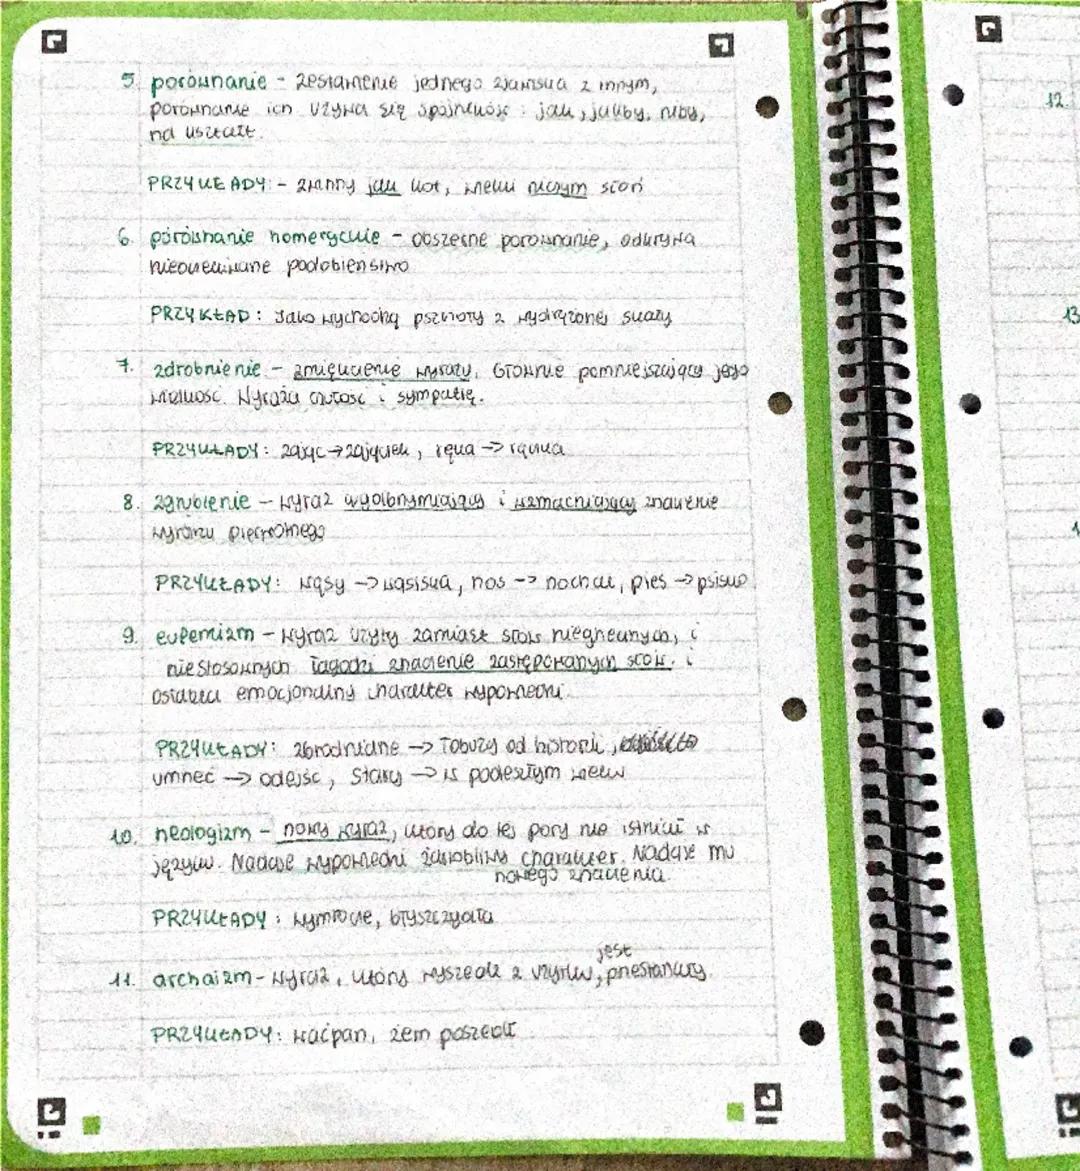 5. porównanie - zestawienie jednego zjawiska z innym,
porównanie ich używa się spójników: jak, jakby, niby,
na kształt.
PRZYKŁADY: - zwinny jak kot, wielki niczym słoń
6. porównanie homeryckie - obszerne porównanie, odkrywa
nieoczekiwane podobieństwo
PRZYKŁAD: Jako wychodzą pszczoły z wydrążonej skały
7. zdrobnienie - zmiękczenie wyrazu, głównie pomniejszający jego
wielkość. Wyraża czułość i sympatię.
PRZYKŁADY: zając → zajączek, ręka → rączka
8. zgrubienie - wyraz wyolbrzymiający i wzmacniający znaczenie
wyrazu pierwotnego
PRZYKŁADY: wąsy → wąsiska, nos → nochal, pies → psisko
9. eufemizm - wyraz użyty zamiast słów niegrzecznych, i
niestosownych łagodzi znaczenie zastępowanych słów. i
osłabia emocjonalny charakter wypowiedzi.
PRZYKŁADY: zbrodnicze → Tobuzy od historii,
umrzeć → odejść, stary → w podeszłym wieku
10. neologizm - nowy wyraz, który do tej pory nie istniał w
języku. Nadaje wypowiedzi żartobliwy charakter. Nadaje mu
nowego znaczenia
PRZYKŁADY: , błyszczydła
11. archaizm - wyraz, który wyszedł z użytku, jest przestarzały.
PRZYKŁADY: waćpan, żem poszedł
12.
13